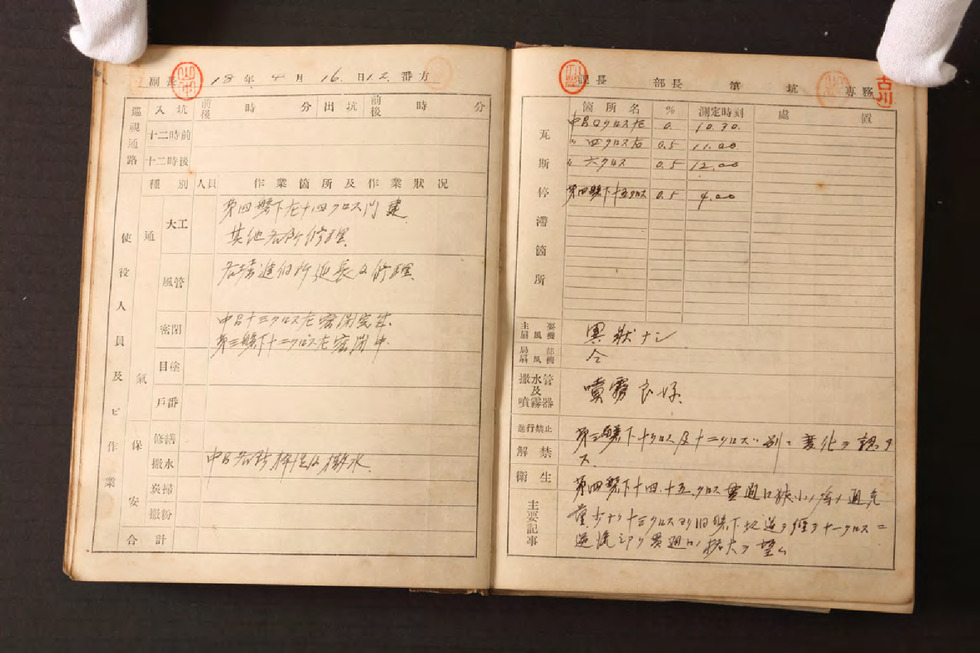 副長
18年4月16日12番方
巡視通路
入坑 前後 時 分 出坑 前後 時 分
十二時前
十二時後
使役人員及ビ作業
種別 人員 作業箇所及作業狀况
通氣
大工 第四盤下左十四クロス門建
其他各所修理
風管 各坑進個所延長及修理
密閉 中日十三クロス左密閉完成
第三盤下十二クロス左密閉中
目塗
戸番
保安
修繕
撒水 中日各詰撒水
炭掃
撒粉
合計
課長 部長 第 坑 専務
古川
瓦斯停滯箇所
箇所名 % 測定時刻 處置
クロス左 0. 10.30
〃 四クロス右 0.5 11.00
〃 六クロス 0.5 12.00
第四盤下十五クロス 0.5 4.00
主要扇風機 異狀ナシ
局部扇風機 仝
撒水管及噴霧器 噴霧良好
進行禁止
解禁
第三盤下十クロス及十二クロス 別ニ変化ヲ認メ
ス
衛生
主要記事
第四盤下十四、十五、クロス貫通口狹小ノ為メ通氣
量少ナリ十三クロスヨリ旧盤下坑道ヲ経テ十一クロスニ
逆流シアリ貫通口ノ拡大ヲ望ム